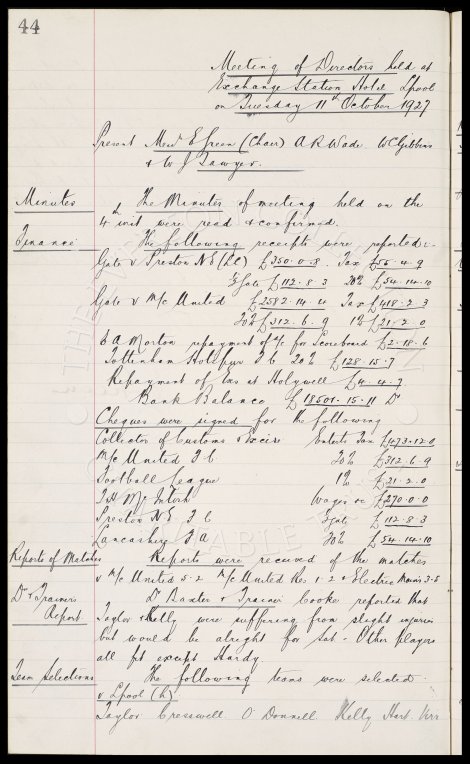 44
Meeting of Directors held at
Exchange Station Hotel Lpool
on Tuesday 11th October 1927
Present Messrs E Green (Chair) A R Wade W C Gibbins
& W J Sawyer.
Minutes The Minutes of meeting held on the
4th inst were read & confirmed.
Finance The following receipts were reported:-
Gate v Preston N E (LC) £350.0.8 Tax £56.4.9
⅓ Gate £112.8.3 20% £54.14.10
Gate v M/c United £2582.14.4 Tax £418.2.3
20% £312.6.9 1% £21.2.0
E A Morton repayment of a/c for Scoreboard £2.18.6
Tottenham Hotspur F C 20% £128.15.7
Repayment of tax at Holywell £4.4.7
Bank Balance £18501.15.11 Dr
Cheques were signed for the following
Collector of Customs & Excise Enterts Tax £473.12.0
M/c United F C 20% £312.6.9
Football League 1% £21.2.0
T H McIntosh Wages &c £270.0.0
Preston N E F C ⅓ gate £112.8.3
Lancashire F A 20% £54.14.10
Reports of Matches Reports were received of the matches
v M/c United 5-2 M/c United Res 1-2 & Electric 3-5
Dr & Trainers Dr Baxter & Trainer Cooke reported that
Report Taylor & Kelly were suffering from slight injuries
but would be alright for Sat - Other players
all fit except Hardy
Team Selections The following teams were selected
v Lpool (h)
Taylor Cresswell O'Donnell Kelly Hart Virr